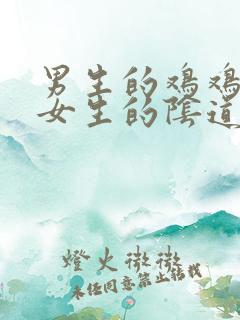 男生的鸡鸡
女生的陰道
燈火微微
未经同意禁止转载